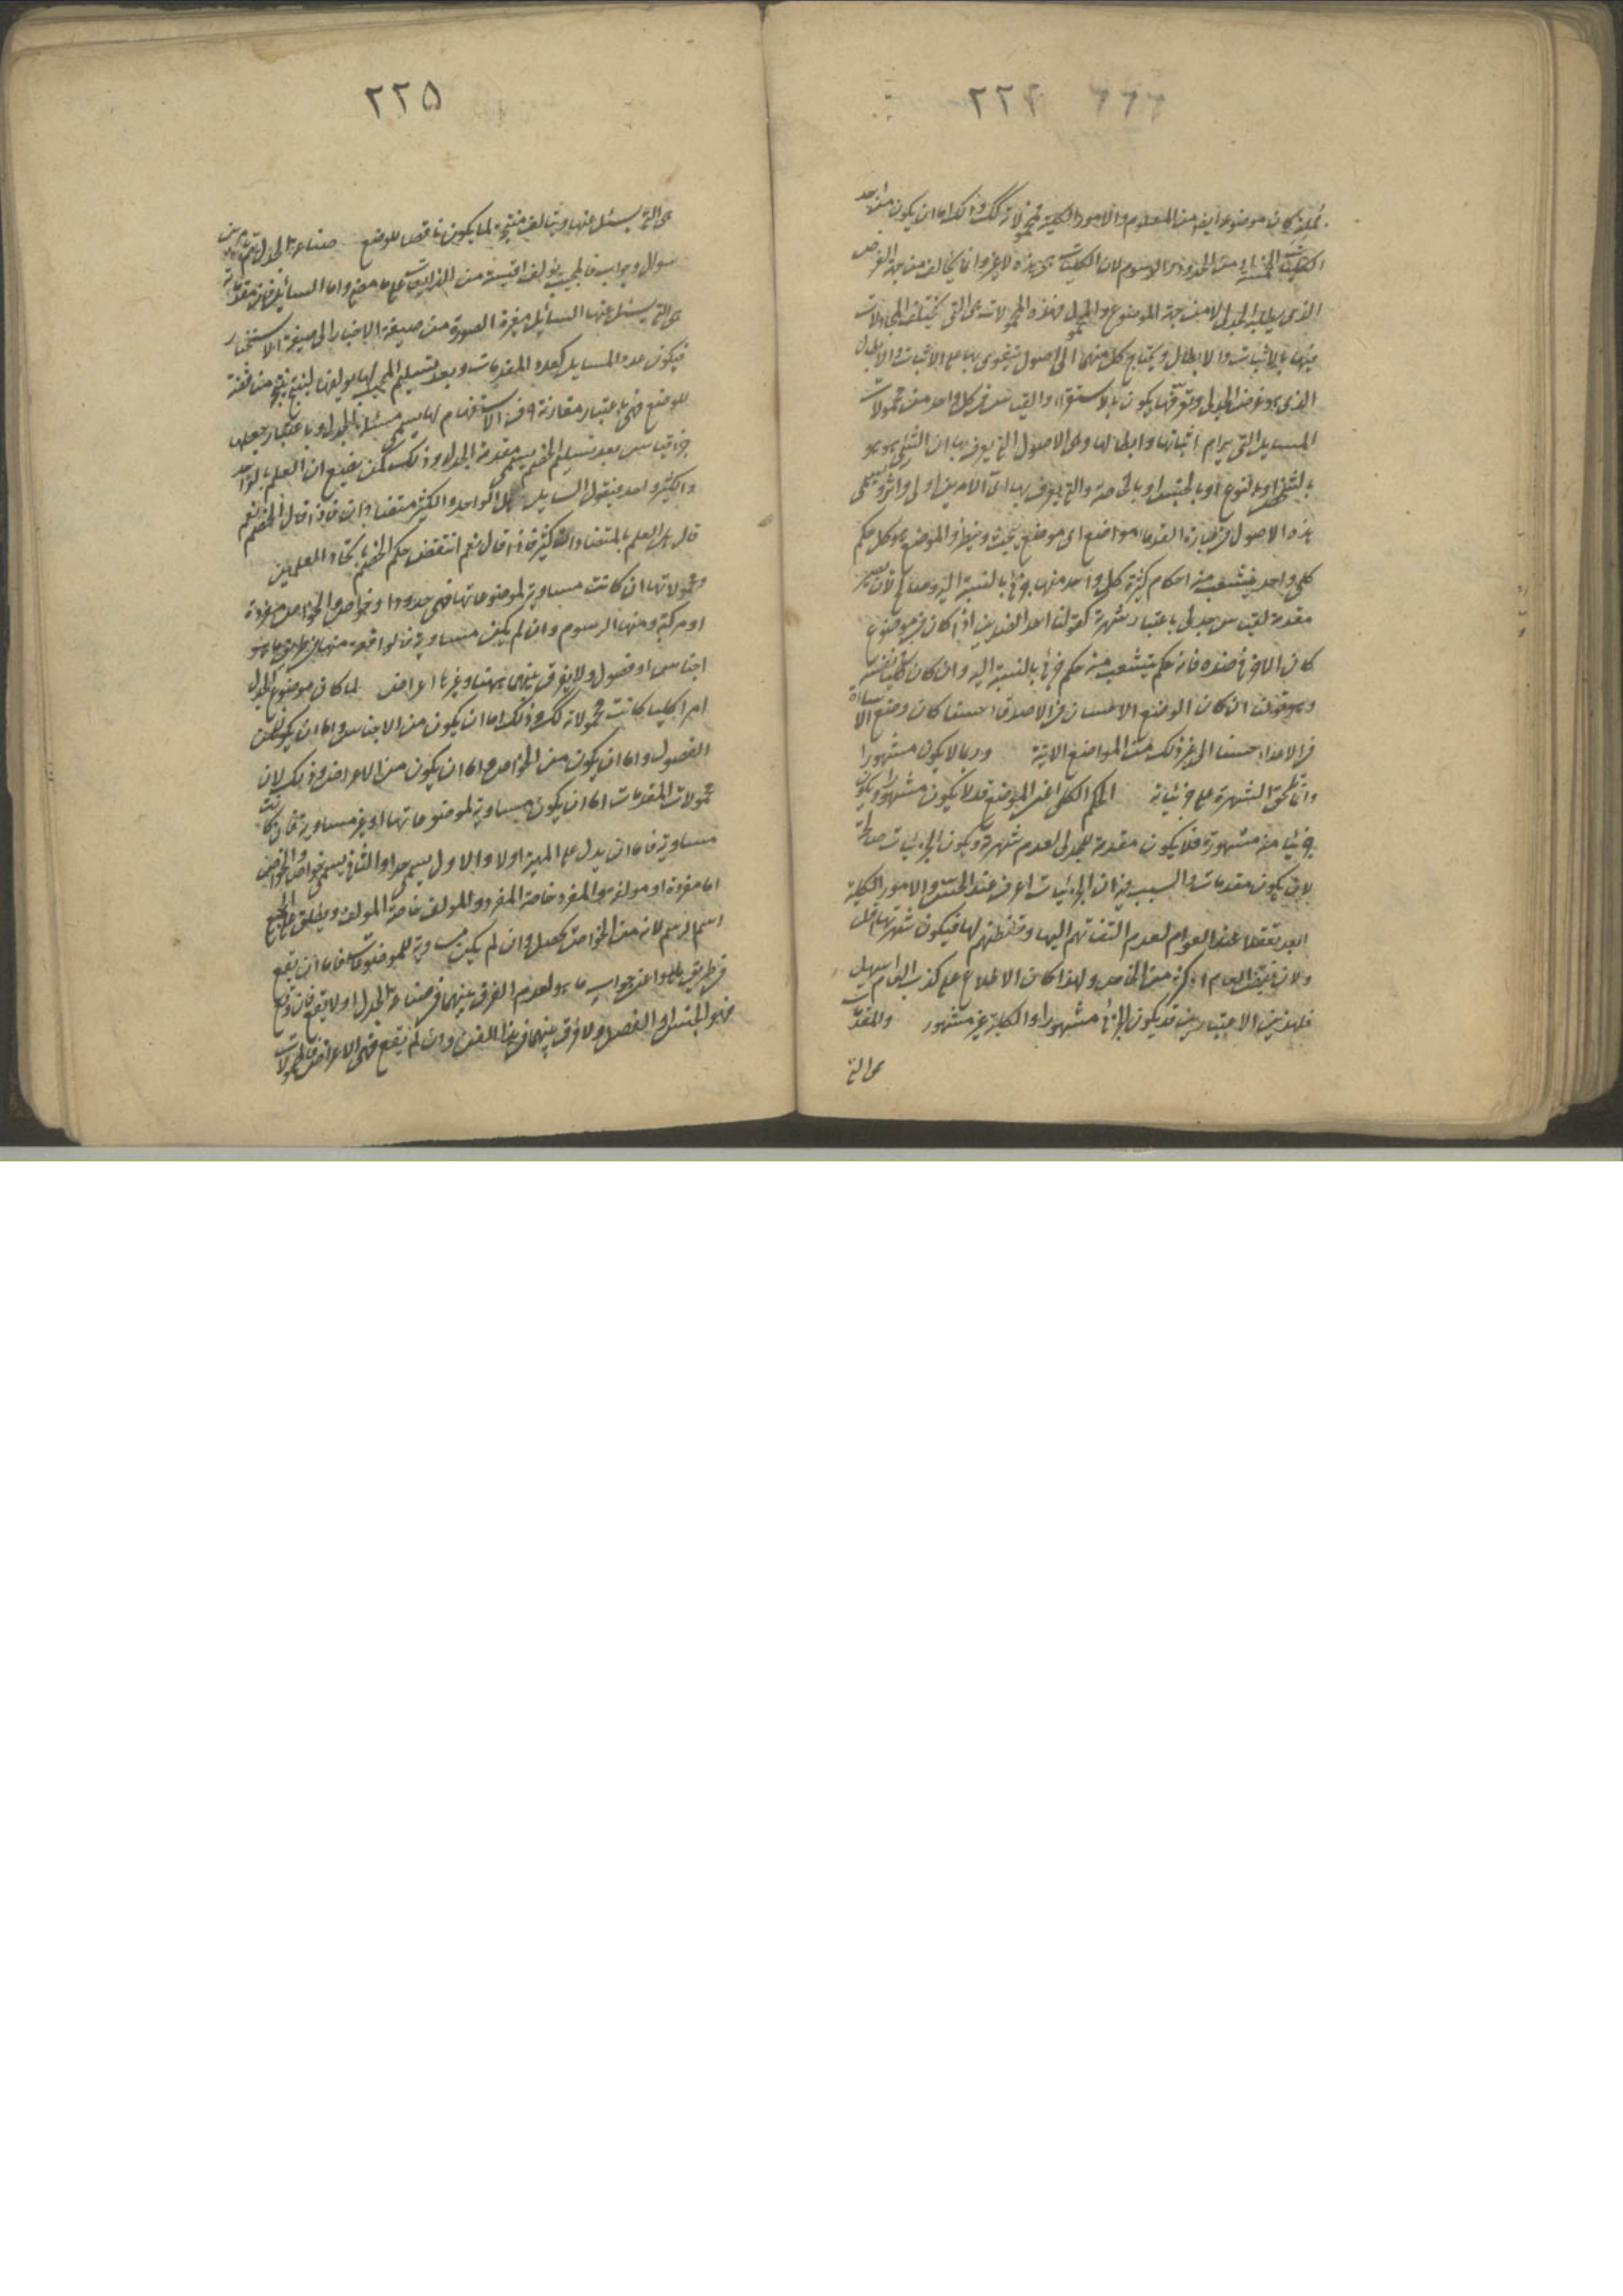 ٢٢٤
كان موضوعا من العلوم والامور الكلية محمولاته كك وذلك اما ان يكون من احد
الكليات الخمسة او من الحدود او الرسوم لان الكليات هى هذه لا غير وانما يخالف من جهة الغرض
الذى يطلبه الجدل لا من جهة الموضوع والمحمول فهذه المحمولات هى التى يختلف المجادلات
فيها بالاثبات والابطال ويحتاج كل منهما الى اصول يتقوى بها على الاثبات والابطال
الذى هو غرض الجدلى وتوقفها يكون بالاستقراء والقياس فى كل واحد من محمولات
المسايل التى يرام اثباتها وابطالها وهى الاصول التى يعرف بها ان الشئ هو هو
بالشخص او بالنوع او بالجنس او بالخاصة والتى يعرف بها اى الامرين اولى واثر ويسمى
هذه الاصول فى عبارة القدماء مواضع اى موضع بحث ونظر والموضع هو كل حكم
كلى واحد ينشعب منه احكام كثيرة كل واحد منها جزئى بالنسبة اليه وصالح لان يصير
مقدمة لقياس جدلى باعتبار شهرة كقولنا احد الضدين اذا كان فى موضوع
كان الاخر فى ضده فانه حكم ينشعب منه حكم جزئى بالنسبة اليه وان كان كليا فى نفسه
وهو قولنا ان كان الوضع الاحسان فى الاصدقاء حسنا كان وضع الاساءة
فى الاعداء حسنا الى غير ذلك من المواضع الاتية وربما لا يكون مشهورا
وانما تلحق الشهرة على جزئياته الحكم الكلى اعنى الموضع قد لا يكون مشهورا ويكون
جزئيا منه مشهورة فلا يكون مقدمة للجدلى لعدم شهرة ويكون الجزئيات صالحة
لان يكون مقدمات والسبب فيه ان الجزئيات اعرف عند الحس والامور الكلية
ابعد تعقلا عند العوام لعدم التفاتهم اليها وتفطنهم لها فيكون شهرتها اقل
ولان نقيض العام اكثر من الخاص ولهذا كان الاطلاع على كذب العام اسهل
فلهذين الاعتبارين قد يكون الجزئى مشهورا والكلية غير مشهور والمقدمات
هى التى
٢٢٥
هى التى يسئل عنها ويتالف منتجة لما يكون ناقضا للوضع صناعة الجدل تتم من
سوال وجواب فالمجيب يولف اقيسته من الذايعات على ما مضى واما السايل فان مقدماته
هى التى يسئل عنها السايل مغيرة الصورة من صيغة الاخبار الى صيغة الاستخبار
فيكون عدد المسايل كعدد المقدمات وبعد تسليم المجيب لها يولفها لينتج مناقضة
للوضع فهى باعتبار مقارنة حرف الاستفهام لها يسمى مسئلة الجدل وباعتبار جعلها
جزء قياس بعد تسليم الخصم يسمى مقدمة الجدل وذلك كمن يضع ان العلم بالواحد
والكثير واحد فيقول السايل هل الواحد والكثير متضادان فاذا قال الخصم نعم
قال هل العلم بالمتضادات كثيرة فاذا قال نعم انتقض حكم الخصم باتحاد العلمين
ومحمولاتها ان كانت مساوية لموضوعاتها فهى حدود او خواص والخواص مفردة
او مركبة ومنها الرسوم وان لم يكن مساوية فالواقعة منها فى طريق ما هو
اجناس او فصول ولا يفرق بينهما ههنا وغيرها اعراض لما كان موضوع الجدل
امرا كليا كانت محمولاته كك وذلك اما ان يكون من الاجناس واما ان يكون من
الفصول واما ان يكون من الخواص واما ان يكون من الاعراض وذلك لان
محمولات المقدمات اما ان يكون مساوية لموضوعاتها او غير مساوية فان كانت
مساوية فاما ان يدل على المهية اولا والاول يسمى حدا والثانى يسمى خواص والخواص
اما مفردة او مولفة والمفرد خاصة المفرد والمولف خاصة المولف ويطلق على الجميع
اسم الرسم لانه من الخواص يحصل وان لم يكن مساوية للموضوعات فاما ان يقع
فى طريق ما هو اعنى جواب ما هو لعدم الفرق بينهما فى صناعة الجدل او لا يقع فان وقع
فهو الجنس او الفصل ولا فرق بينهما فى هذا الفن وان لم يقع فهى الاعراض فالمحمولات